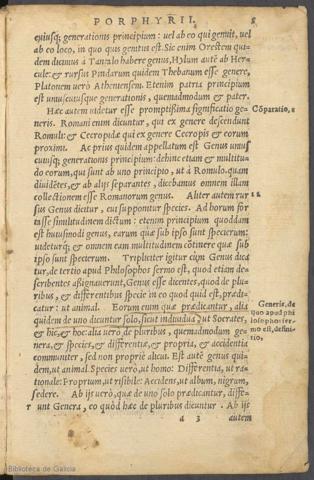 PORPHYRII. 5
cuiusq; generationis principium: uel ab co qui genuit, uel
ab co loco, in quo quis genitus est. Sic enim Orestem qui-
dem dicimus à Tantalo habere genus, Hylum autē ab Her-
cule: & rursus Pindarum quidem Thebanum esse genere,
Platonem uerò Atheniensem. Etenim patria principium
est uniuscuiusque generationis, quemadmodum & pater.
Hæc autem uidetur esse promptißima significatio ge- Cōparatio,
neris. Romani enim dicuntur, qui ex genere descendunt
Romuli: & Cecropidæ qui ex genere Cecropis & eorum
proximi. Ac prius quidem appellatum est Genus unius
cuiusq; generationis principium: dehinc etiam & multitu-
do eorum, qui sunt ab uno principio, ut à Romulo. quam
diuidētes, & ab alijs separantes, dicebamus omnem illam
collectionem esse Romanorum genus. Aliter autem rur
sus Genus dicitur, cui supponitur species. Ad horum for
tasse similitudinem dictum: etenim principium quoddam
est huiusmodi genus, earum quæ sub ipso sunt specierum:
uideturq; & omnem eam multitudinem cōtinere quæ sub
ipso sunt specierum. Tripliciter igitur cùm Genus dica
tur, de tertio apud Philosophos sermo est, quod etiam de-
scribentes aßignauerunt, Genus esse dicentes, quod de plu-
ribus, & differentibus specie in eo quod quid est, prædi-
catur: ut animal. Eorum enim quæ prædicantur, alia Generis, de
quidem de uno dicuntur solo, sicut indiuidua: ut Socrates, quo apud phi
& hic, & hoc: alia uerò de pluribus, quemadmodum ge- losophos ser
nera, & species, & differentiæ, & propria, & accidentia mo est, defini
communiter, sed non propriè alicui. Est autē genus qui- tio,
dem, ut animal. Species uerò, ut homo: Differentia, ut ra-
tionale: Proprium, ut risibile: Accidens, ut album, nigrum,
sedere. Ab ijs uerò, quæ de uno solo prædicantur, diffe-
runt Genera, eo quòd hæc de pluribus dicuntur. Ab ijs
a 3 autem
Biblioteca de Galicia